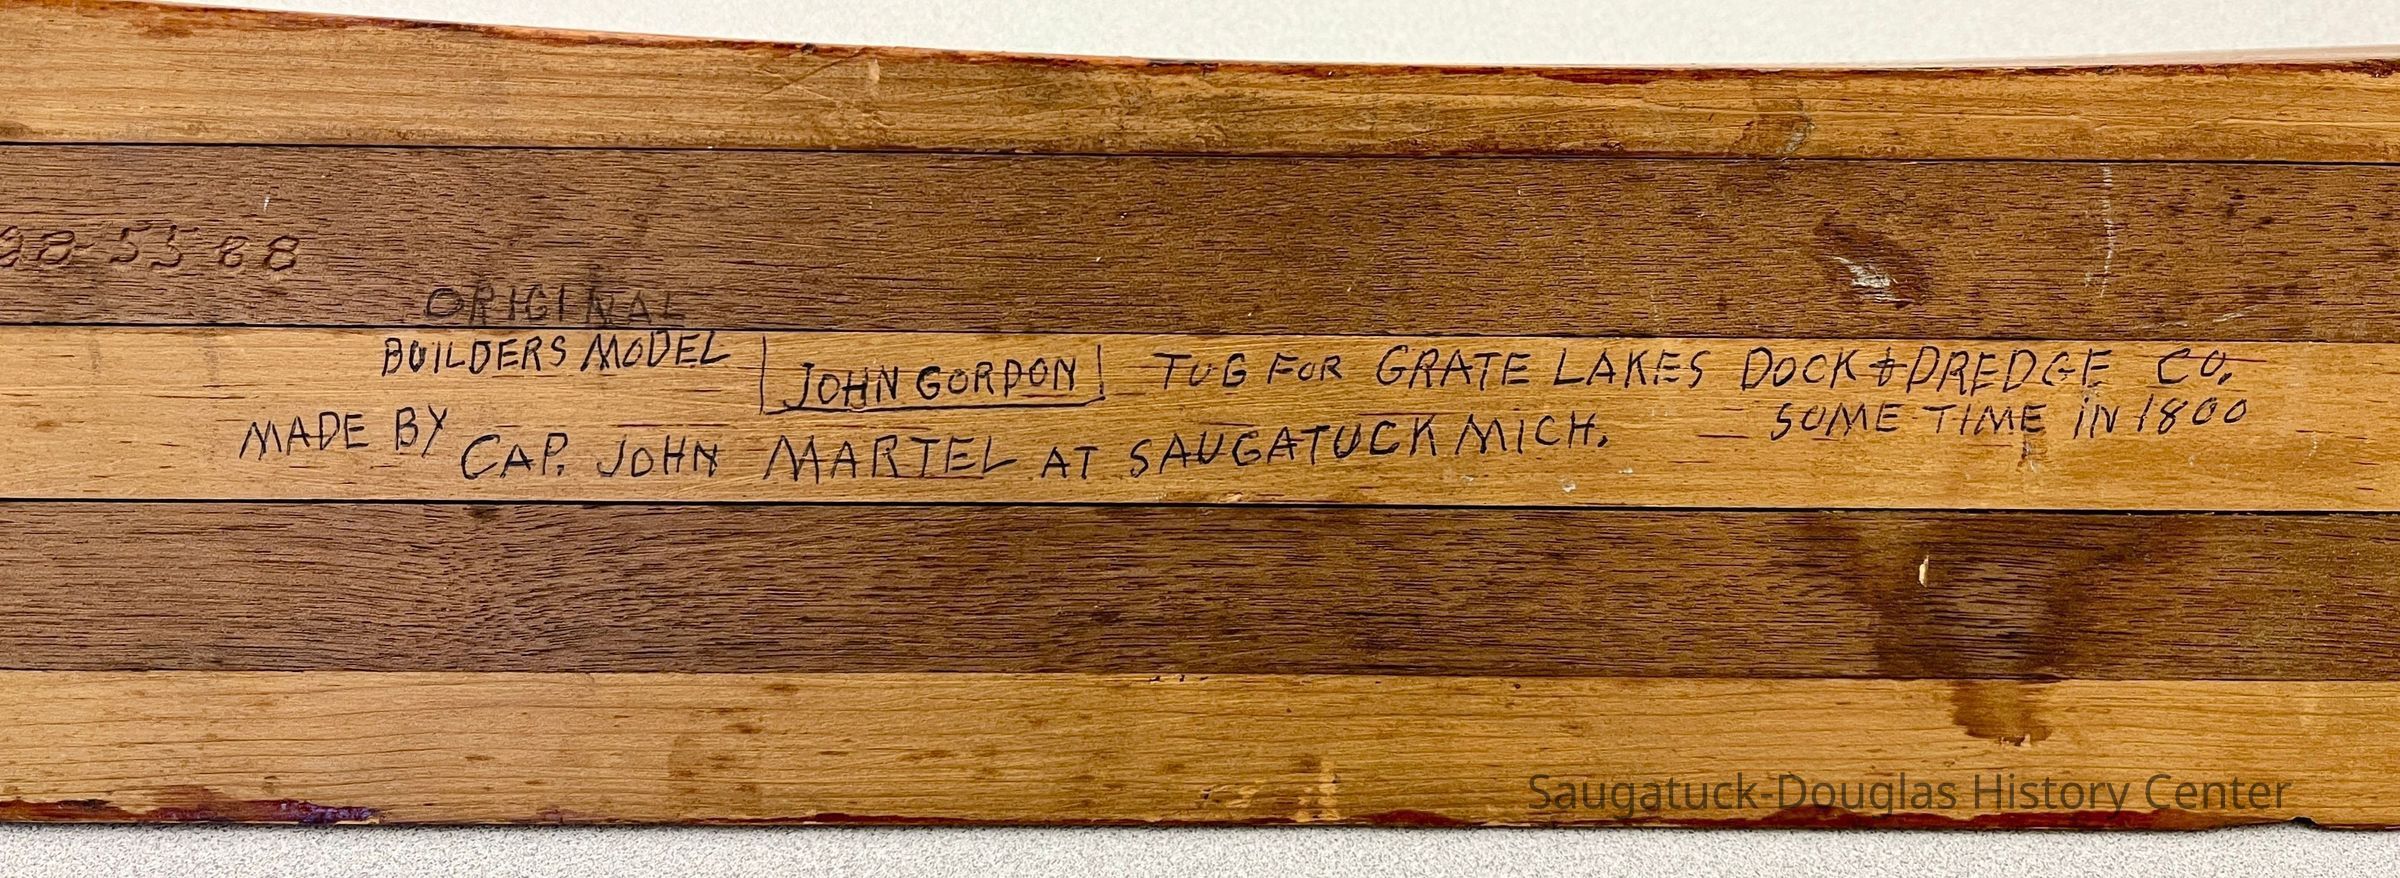 28-5588
ORIGINAL
BUILDERS MODEL JOHN GORDON TUG FOR GRATE LAKES DOCK & DREDGE CO.
SOME TIME IN 1800
MADE BY CAP. JOHN MARTEL AT SAUGATUCK MICH.
Saugatuck-Douglas History Center